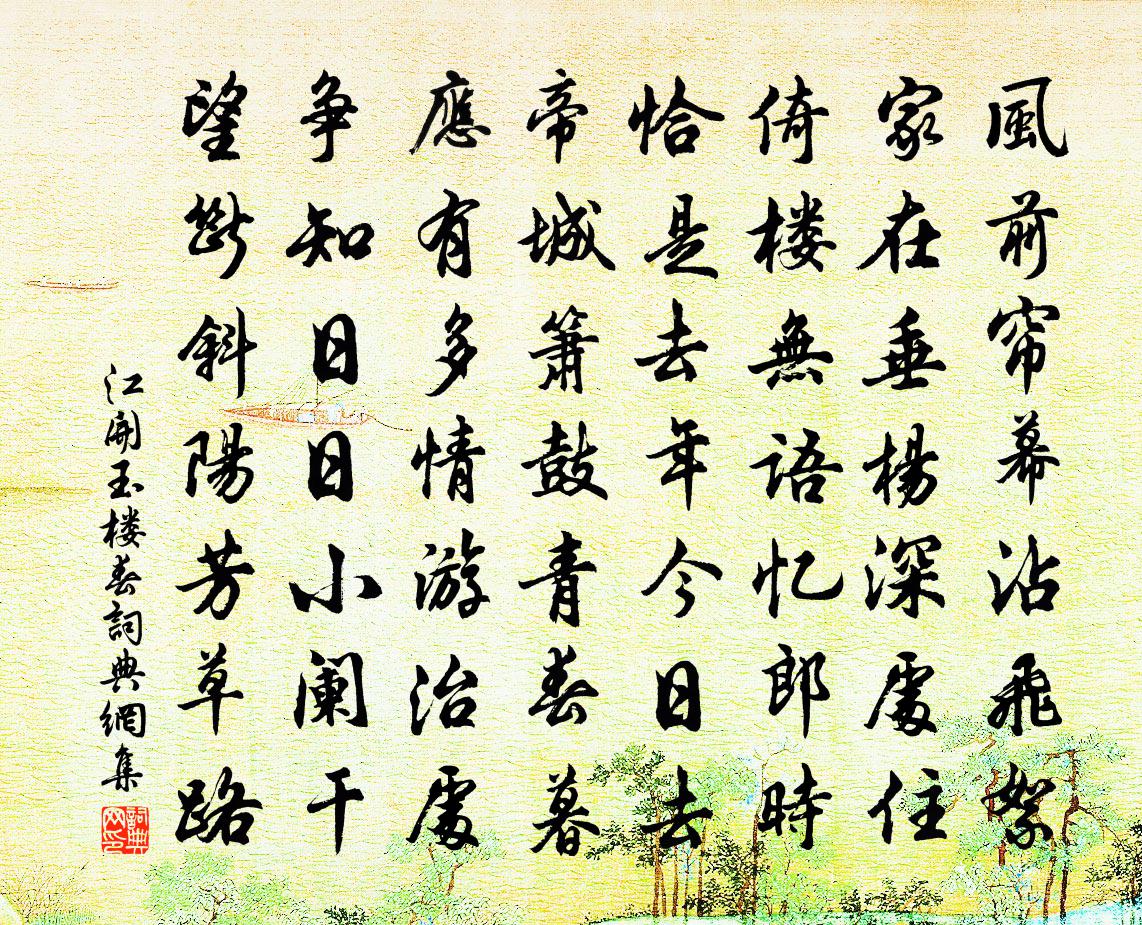 風前帘幕沾飛絮
家在垂楊深處住
倚楼無語忆郎時
恰是去年今日去
帝城箫鼓青春暮
應有多情游冶處
争知日日小阑干
望斷斜陽芳草路
江開玉楼春詞典網集
詞典网印